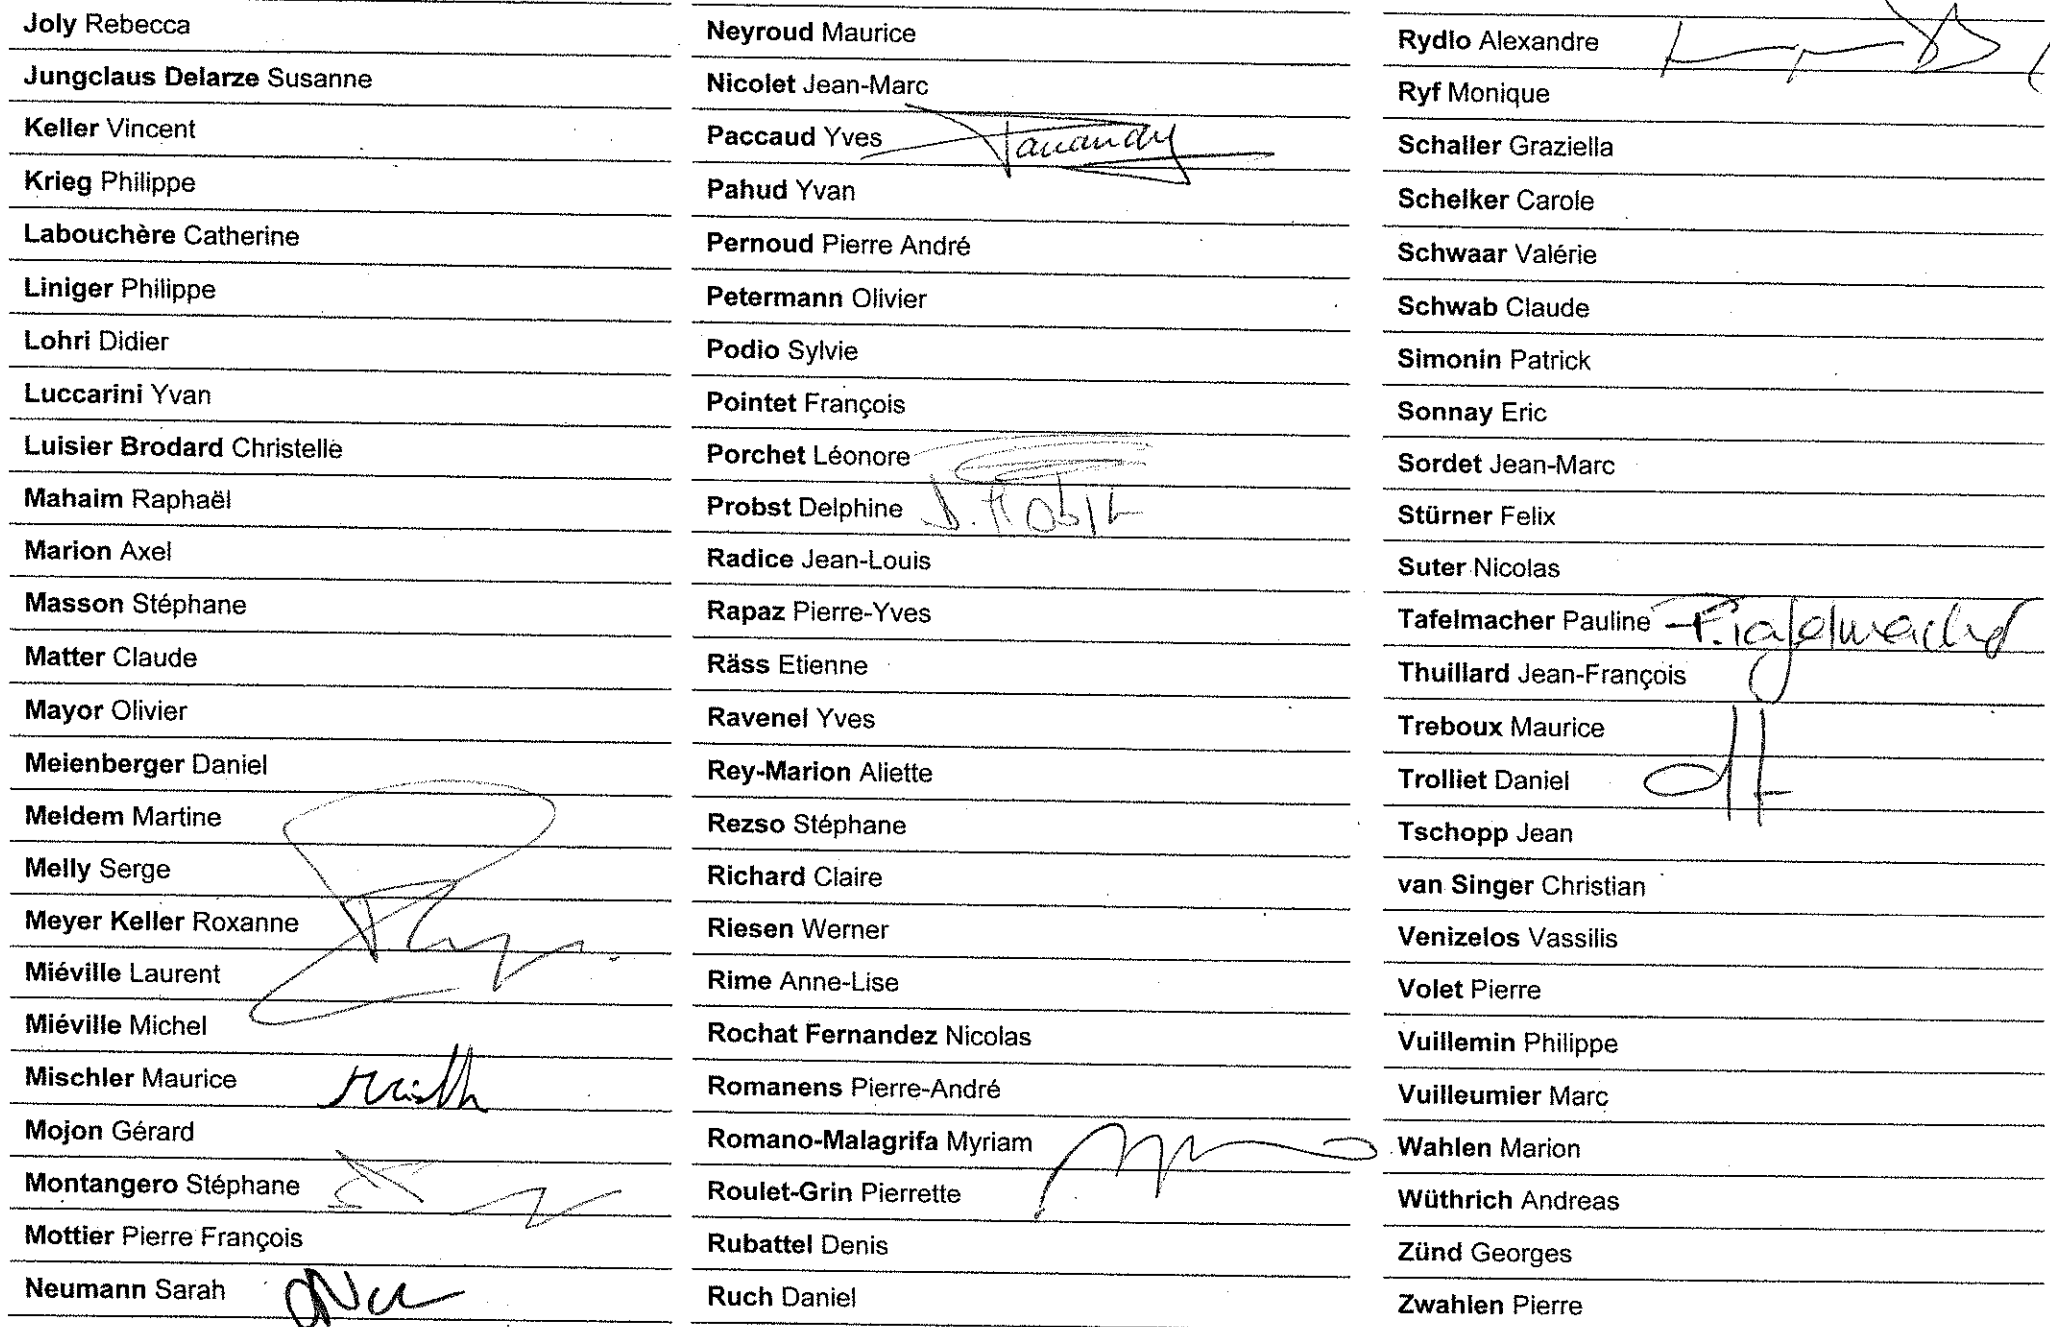 Joly Rebecca
Jungclaus Delarze Susanne
Keller Vincent
Krieg Philippe
Labouchère Catherine
Liniger Philippe
Lohri Didier
Luccarini Yvan
Luisier Brodard Christelle
Mahaim Raphaël
Marion Axel
Masson Stéphane
Matter Claude
Mayor Olivier
Meienberger Daniel
Meldem Martine
Melly Serge
Meyer Keller Roxanne
Miéville Laurent
Miéville Michel
Mischler Maurice
Mojon Gérard
Montangero Stéphane
Mottier Pierre François
Neumann Sarah
Neyroud Maurice
Nicolet Jean-Marc
Paccaud Yves
Pahud Yvan
Pernoud Pierre André
Petermann Olivier
Podio Sylvie
Pointet François
Porchet Léonore
Probst Delphine D. Probst
Radice Jean-Louis
Rapaz Pierre-Yves
Räss Etienne
Ravenel Yves
Rey-Marion Aliette
Rezso Stéphane
Richard Claire
Riesen Werner
Rime Anne-Lise
Rochat Fernandez Nicolas
Romanens Pierre-André
Romano-Malagrifa Myriam
Roulet-Grin Pierrette
Rubattel Denis
Ruch Daniel
Rydlo Alexandre
Ryf Monique
Schaller Graziella
Schelker Carole
Schwaar Valérie
Schwab Claude
Simonin Patrick
Sonnay Eric
Sordet Jean-Marc
Stürner Felix
Suter Nicolas
Tafelmacher Pauline P. Tafelmacher
Thuillard Jean-François
Treboux Maurice
Trolliet Daniel
Tschopp Jean
van Singer Christian
Venizelos Vassilis
Volet Pierre
Vuillemin Philippe
Vuilleumier Marc
Wahlen Marion
Wüthrich Andreas
Zünd Georges
Zwahlen Pierre